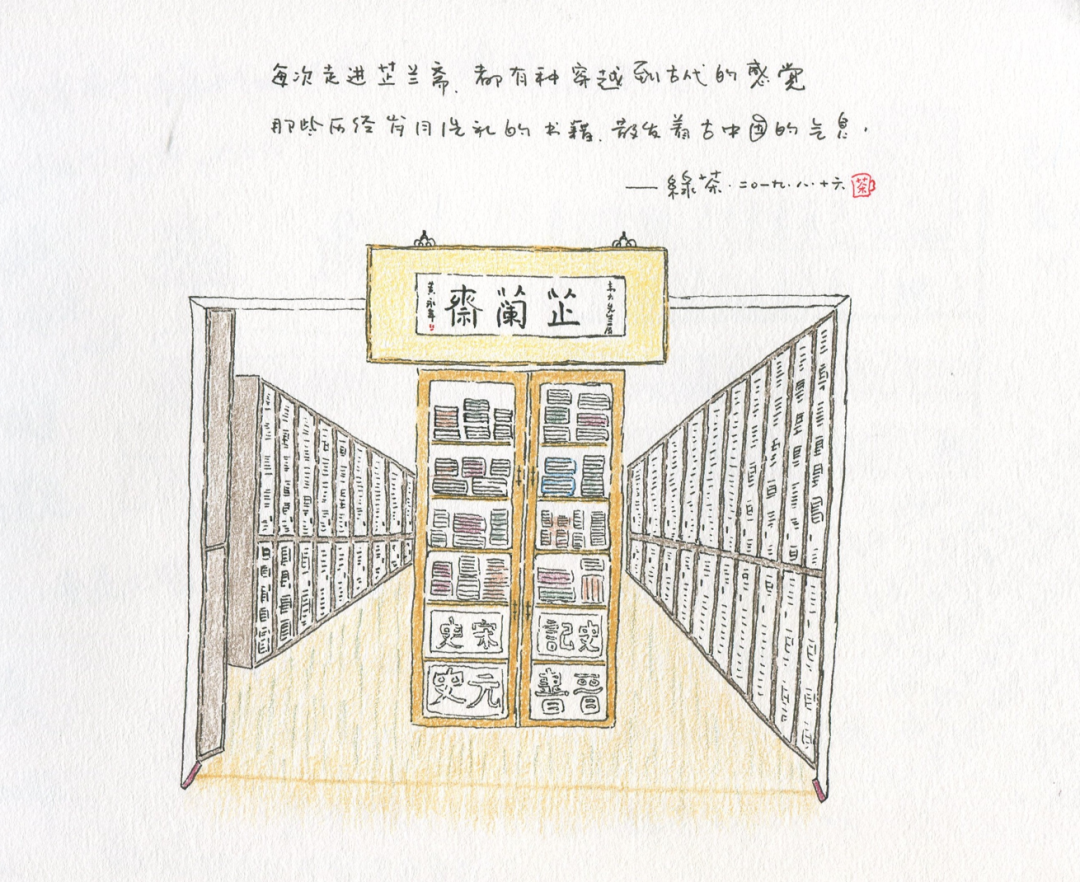 每次走进芷兰斋,都有种穿越到古代的感觉
那些历经岁月洗礼的书籍,散发着古中国的气息.
——綠茶·二〇一九·八·十六 茶
芷蘭齋
黄永年
宋史
史記
元史
晉書